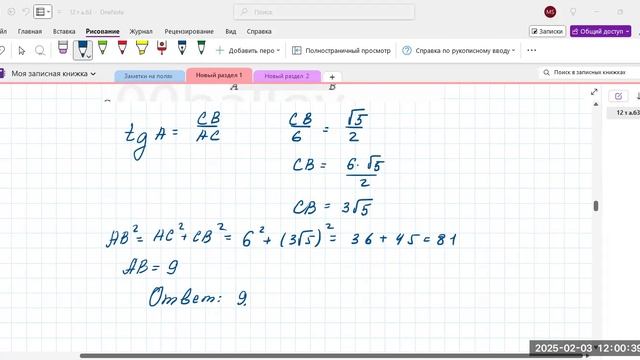 12 т а.63 - OneNote
Поиск
MS
Файл Главная Вставка Рисование Журнал Рецензирование Вид Справка
Записки Общий доступ
Добавить перо Полноэкранный просмотр Справка по рукописному вводу
Моя записная книжка Заметки на полях Новый раздел 1 Новый раздел 2 + Поиск в записных книжках
12 т а.63
A B
tg A = CB/AC
CB/6 = √5/2
CB = 6·√5/2
CB = 3√5
AB² = AC² + CB² = 6² + (3√5)² = 36 + 45 = 81
AB = 9
Ответ: 9.
2025-02-03 12:00:39